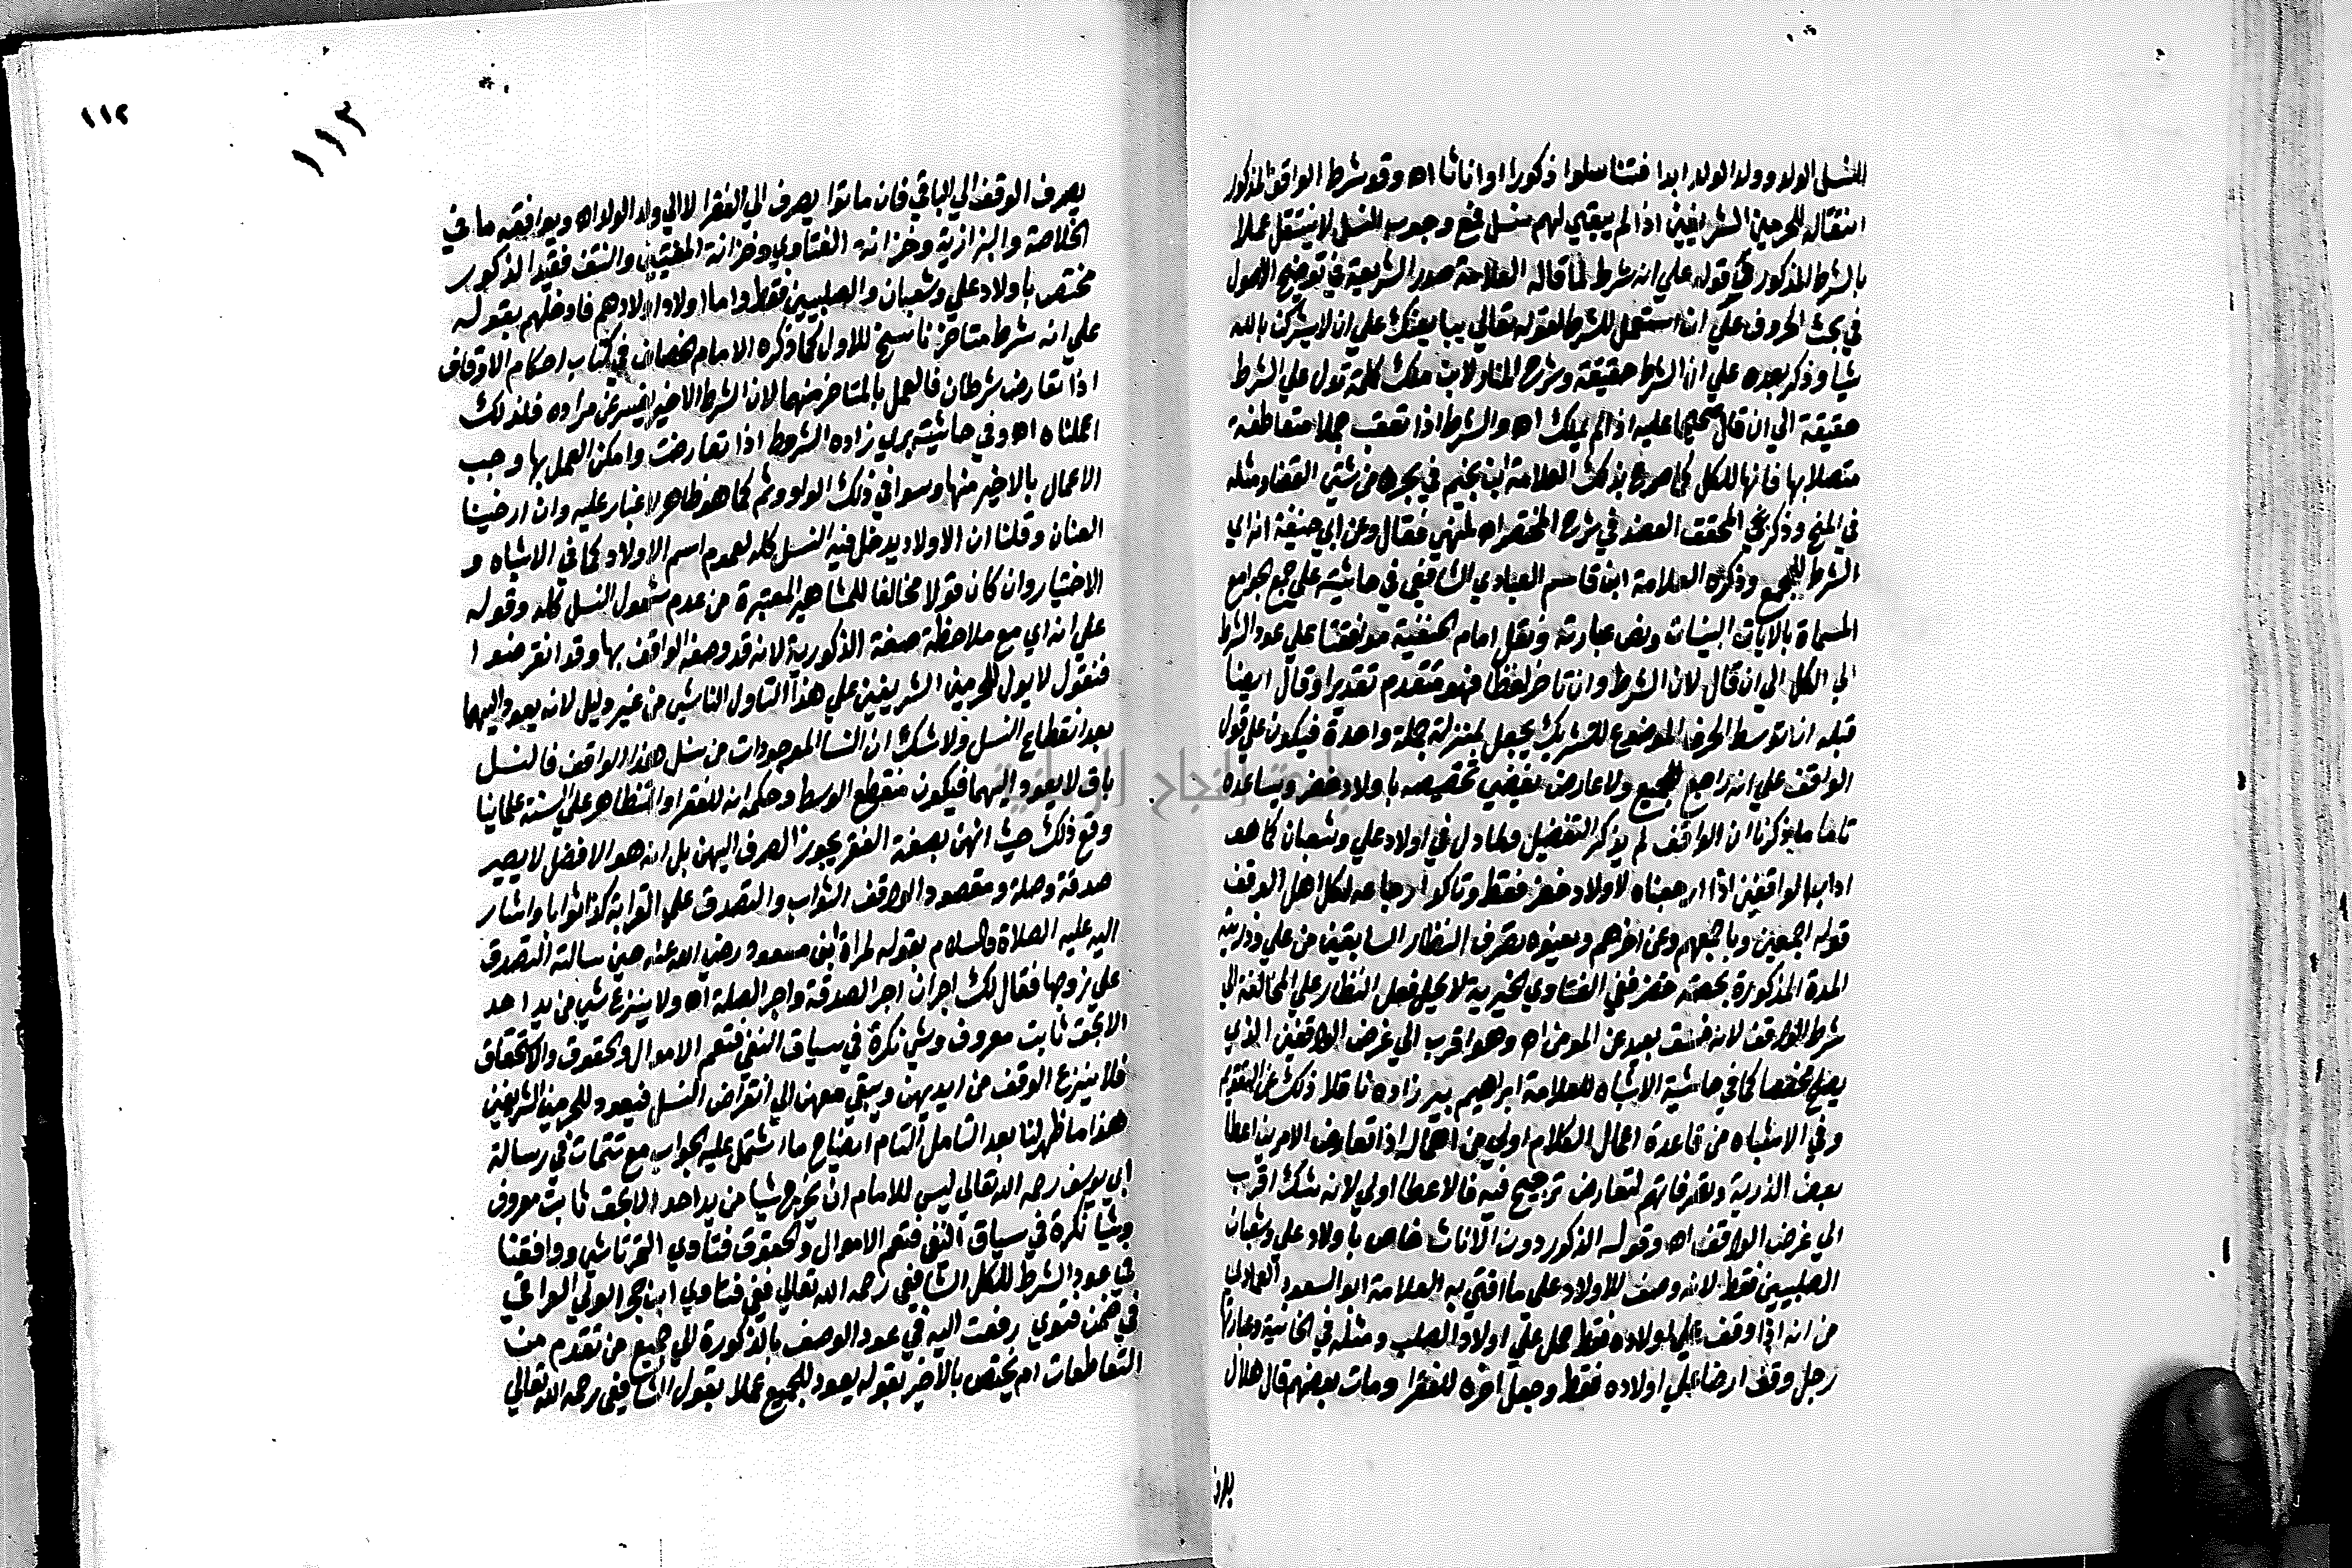 للنسل الولد وولد الولد ابدا فتناسلوا ذكورا او اناثا اه وقوشرط الواقف المذكور
انتقاله للحرمين الشريفين اذا لم يبقي لهم نسل فمع وجود النسل لا ينتقل عملا
بالشرط المذكور في قوله علي انه شرط لما قاله العلامة صدر الشريعة في توضيح الاصول
في بحث الحروف علي ان استعمل للشرط لقوله تعالي يبايعنك علي ان لا يشركن بالله
شيا وذكر بعده علي ان الشرط حقيقة وشرح المنار لابن ملك كلمة تدل علي الشرط
حقيقة الي ان قال عليه اذا لم يملك اه والشرط اذا تعقب جملا متعاطفة
متصلا بها فانها للكل كما صرح بذلك العلامة ابن نجيم في بحره من شتي القضا ومثله
في المنح وذكر المحقق العضد في شرح المختصر المنتهي فقال وعن ابي حنيفة انه اي
الشرط للجميع وذكره العلامة ابن قاسم العبادي الشافعي في حاشيته علي جمع الجوامع
المسماة بالايات البينات ونص عبارته ونقل امام الحنفية موافقتنا علي عود الشرط
الي الكل الي ان قال لان الشرط وان تاخر لفظا فهو متقدم تقديرا وقال ايضا
قبله ان توسط الحرف الموضوع للتشريك يجعل بمنزلة جملة واحدة فيكون علي قول
الواقف علي انه راجع للجميع ولا عارض يقضي تخصيصه باولاد خضر ويساعده
ان الواقف لم يذكر التفضيل في اولاد علي وشعبان كما هو
اداب الواقفين اذا ارجعناه لاولاد خضر فقط وتاكد ارجاعه لكل اهل الوقف
قوله اجمعين وباجمعهم وعن اخرهم ويعينوه تصرف النظار السابقين من علي وذريته
المدة المذكورة بحصته خضر ففي الفتاوي الخيرية لا يحمل فعل النظار علي المخالفة الي
شرط الواقف لانه فسق بعيد عن المؤمن اه وهو اقرب الي غرض الواقفين الذي
يصلح مخصصا كما في حاشية الاشباه للعلامة ابراهيم بير زاده ناقلا ذلك عن
وفي الاشباه من قاعدة اعمال الكلام اولي من اهماله اذا تعارض الامرين اعطا
بعض الذرية وتعارض ترجيح فيه فالاعطا اولي لانه شك اقرب
الي غرض الواقف اه وقوله الذكور دون الاناث خاص باولاد علي وشعبان
الصلبيين فقط لانه وصف للاولاد علي ما افتي به العلامة ابو السعود العمادي
من انه اذا وقف علي اولاده فقط حمل علي اولاد الصلب ومثله في الخانية وعبارتها
رجل وقف ارضا علي اولاده فقط وجعل اخره للفقرا ومات بعضهم قال هلال
يصرف الوقف الي الباقي فان ماتوا يصرف الي الفقرا لا الي ولد الولد اه ويوافقه ما في
الخلاصة والبزازية وخزانة الفتاوي وخزانة المفتيين والنتف فقيد الذكور
مختص باولاد علي وشعبان والصلبيين فقط واما اولاد اولادهم فادخلهم بقوله
علي انه شرط متاخر ناسخ للاول كما ذكره الامام خصاف في كتاب احكام الاوقاف
اذا تعارض شرطان فالعمل بالمتاخر منهما لان الشرط الاخير يفسر عن مراده فلذلك
اعملناه اه وفي حاشية بيري زاده الشروط اذا تعارضت وامكن العمل بها وجب
الاعمال بالاخير منها وسوا في ذلك الواو وثم كما هو ظاهر لا غبار عليه وان ارخينا
العنان وقلنا ان الاولاد يدخل فيه النسل كله لعموم اسم الاولاد كما في الاشباه و
الاختيار وان كان قولا مخالفا للمشاهير المعتبرة من عدم شمول النسل كله وقوله
علي انه اي مع ملاحظة صفة الذكورية لانه قد وصفه الواقف بها وقد انقرضوا
فنقول لا يول للحرمين الشريفين علي هذا التاول الناشي من غير دليل لانه يعود اليهما
بعد انقطاع النسل ولا شك ان النسا الموجودات من نسل هذا الواقف فالنسل
باق لا يعود اليهما فيكون منقطع الوسط وحكمه انه للفقرا والتظاهر علي السنة علمائنا
وقع ذلك حيث انهن بصفة الفقر يجوز الصرف اليهن بل انه هو الافضل لا يصير
صدقة وصلة ومقصود الواقف الثواب والتصدق علي القرابة كذا ثوابا واشار
اليه عليه الصلاة والسلام بقوله لمراة ابن مسعود رضي الله عنه حين سالته التصدق
علي زوجها فقال لك اجران اجر الصدقة واجر الصلة اه ولا ينزع شي من يد احد
الا بحق ثابت معروف وشي نكرة في سياق النفي فتعم الاموال والحقوق والاستحقاق
فلا ينزع الوقف من ايديهن ويبقي معهن الي انقراض النسل فيعود للحرمين الشريفين
هذا ما ظهر لنا بعد التامل التام ايضاح ما اشتمل عليه الجواب مع تتمات في رسالة
ابي يوسف رحمه الله تعالي ليس للامام ان يخرج شيا من يد احد الا بحق ثابت معروف
وشيا نكرة في سياق النفي فتعم الاموال والحقوق فتاوي التمرتاشي ووافقنا
في عود الشرط للكل الشافعي رحمه الله تعالي ففي فتاوي ابن حجر الولي العراقي
في ضمن فتوي رفعت اليه في عود الوصف بالذكورة الي جميع من تقدم من
التعاطفات ام يختص بالاخير بقوله يعود للجميع عملا بقول الشافعي رحمه الله تعالي
١١٢
١١٣